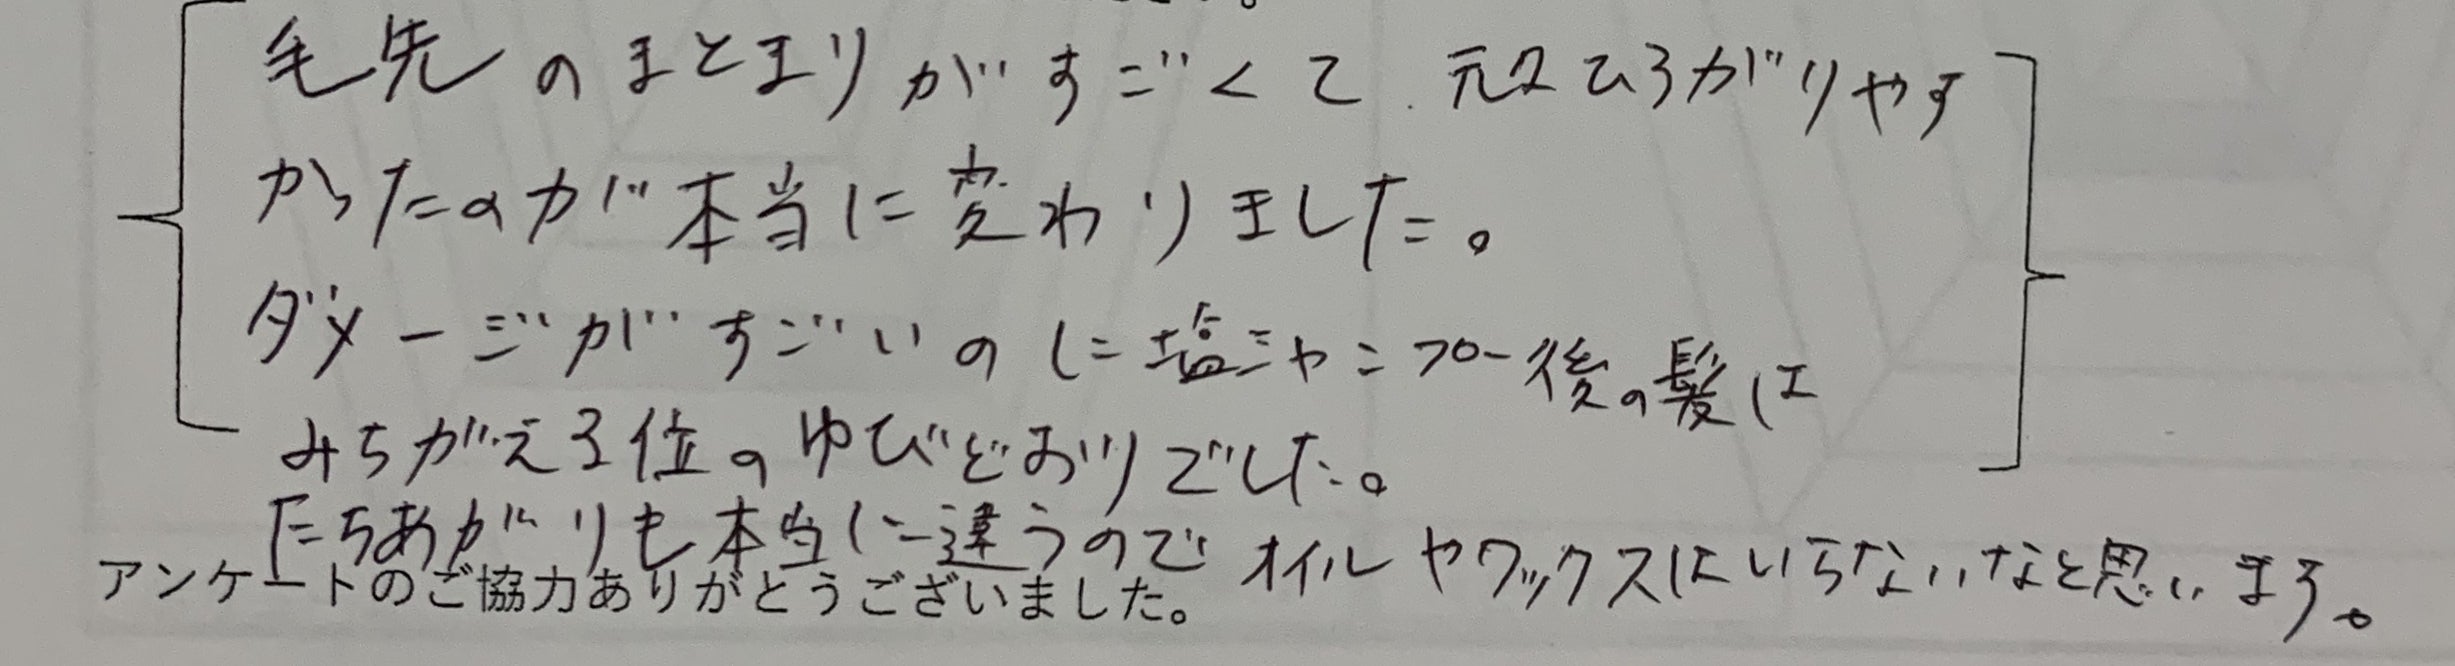 毛先のまとまりがすごくて、元々ひろがりやす
かったのが本当に変わりました。
ダメージがすごいのに塩シャンプー後の髪は
みちがえる位のゆびどおりでした。
たちあがりも本当に違うので オイルやワックスはいらないなと思います。
アンケートのご協力ありがとうございました。